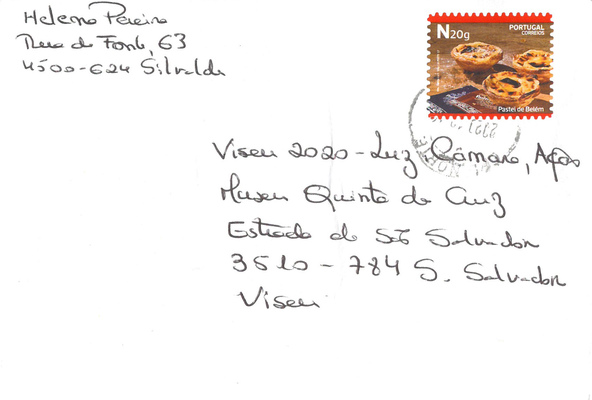 Helena Pereira
Rua da Fonte, 63
4500-624 Silvalde
N20g
PORTUGAL
CORREIOS
Pastel de Belém
Viseu 2020 - Luz, Câmara, Ação
Museu Quinta da Cruz
Estrada de São Salvador
3510 - 784 S. Salvador
Viseu